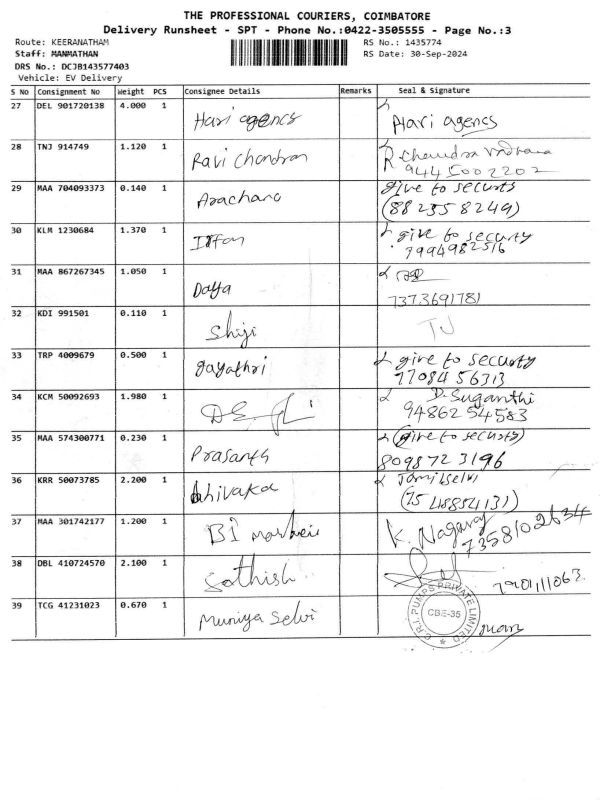 THE PROFESSIONAL COURIERS, COIMBATORE
Delivery Runsheet - SPT - Phone No.:0422-3505555 - Page No.:3
Route: KEERANATHAM RS No.: 1435774
Staff: MANMATHAN RS Date: 30-Sep-2024
DRS No.: DCJB143577403
Vehicle: EV Delivery
S No Consignment No Weight PCS Consignee Details Remarks Seal & Signature
27 DEL 901720138 4.000 1 Hari agency Hari agency
28 TNJ 914749 1.120 1 Ravi Chandran R. Chandra
9445002202
29 MAA 704093373 0.140 1 Arachana give to security
(8823558249)
30 KLM 1230684 1.370 1 Irfan give to security
7994982516
31 MAA 867267345 1.050 1 Datta
7373691781
32 KDI 991501 0.110 1 Shiji TJ
33 TRP 4009679 0.500 1 gayathri give to security
7708456313
34 KCM 50092693 1.980 1 D. Suganthi
9486254583
35 MAA 574300771 0.230 1 Prasanth (give to security)
8098723196
36 KRR 50073785 2.200 1 Tamilselvi
(7548854131)
37 MAA 301742177 1.200 1 BI K. Nagaraj
7358102634
38 DBL 410724570 2.100 1 Sathish
39 TCG 41231023 0.670 1 Muniya Selvi
C.R.I. PUMPS PRIVATE LIMITED
CBE-35